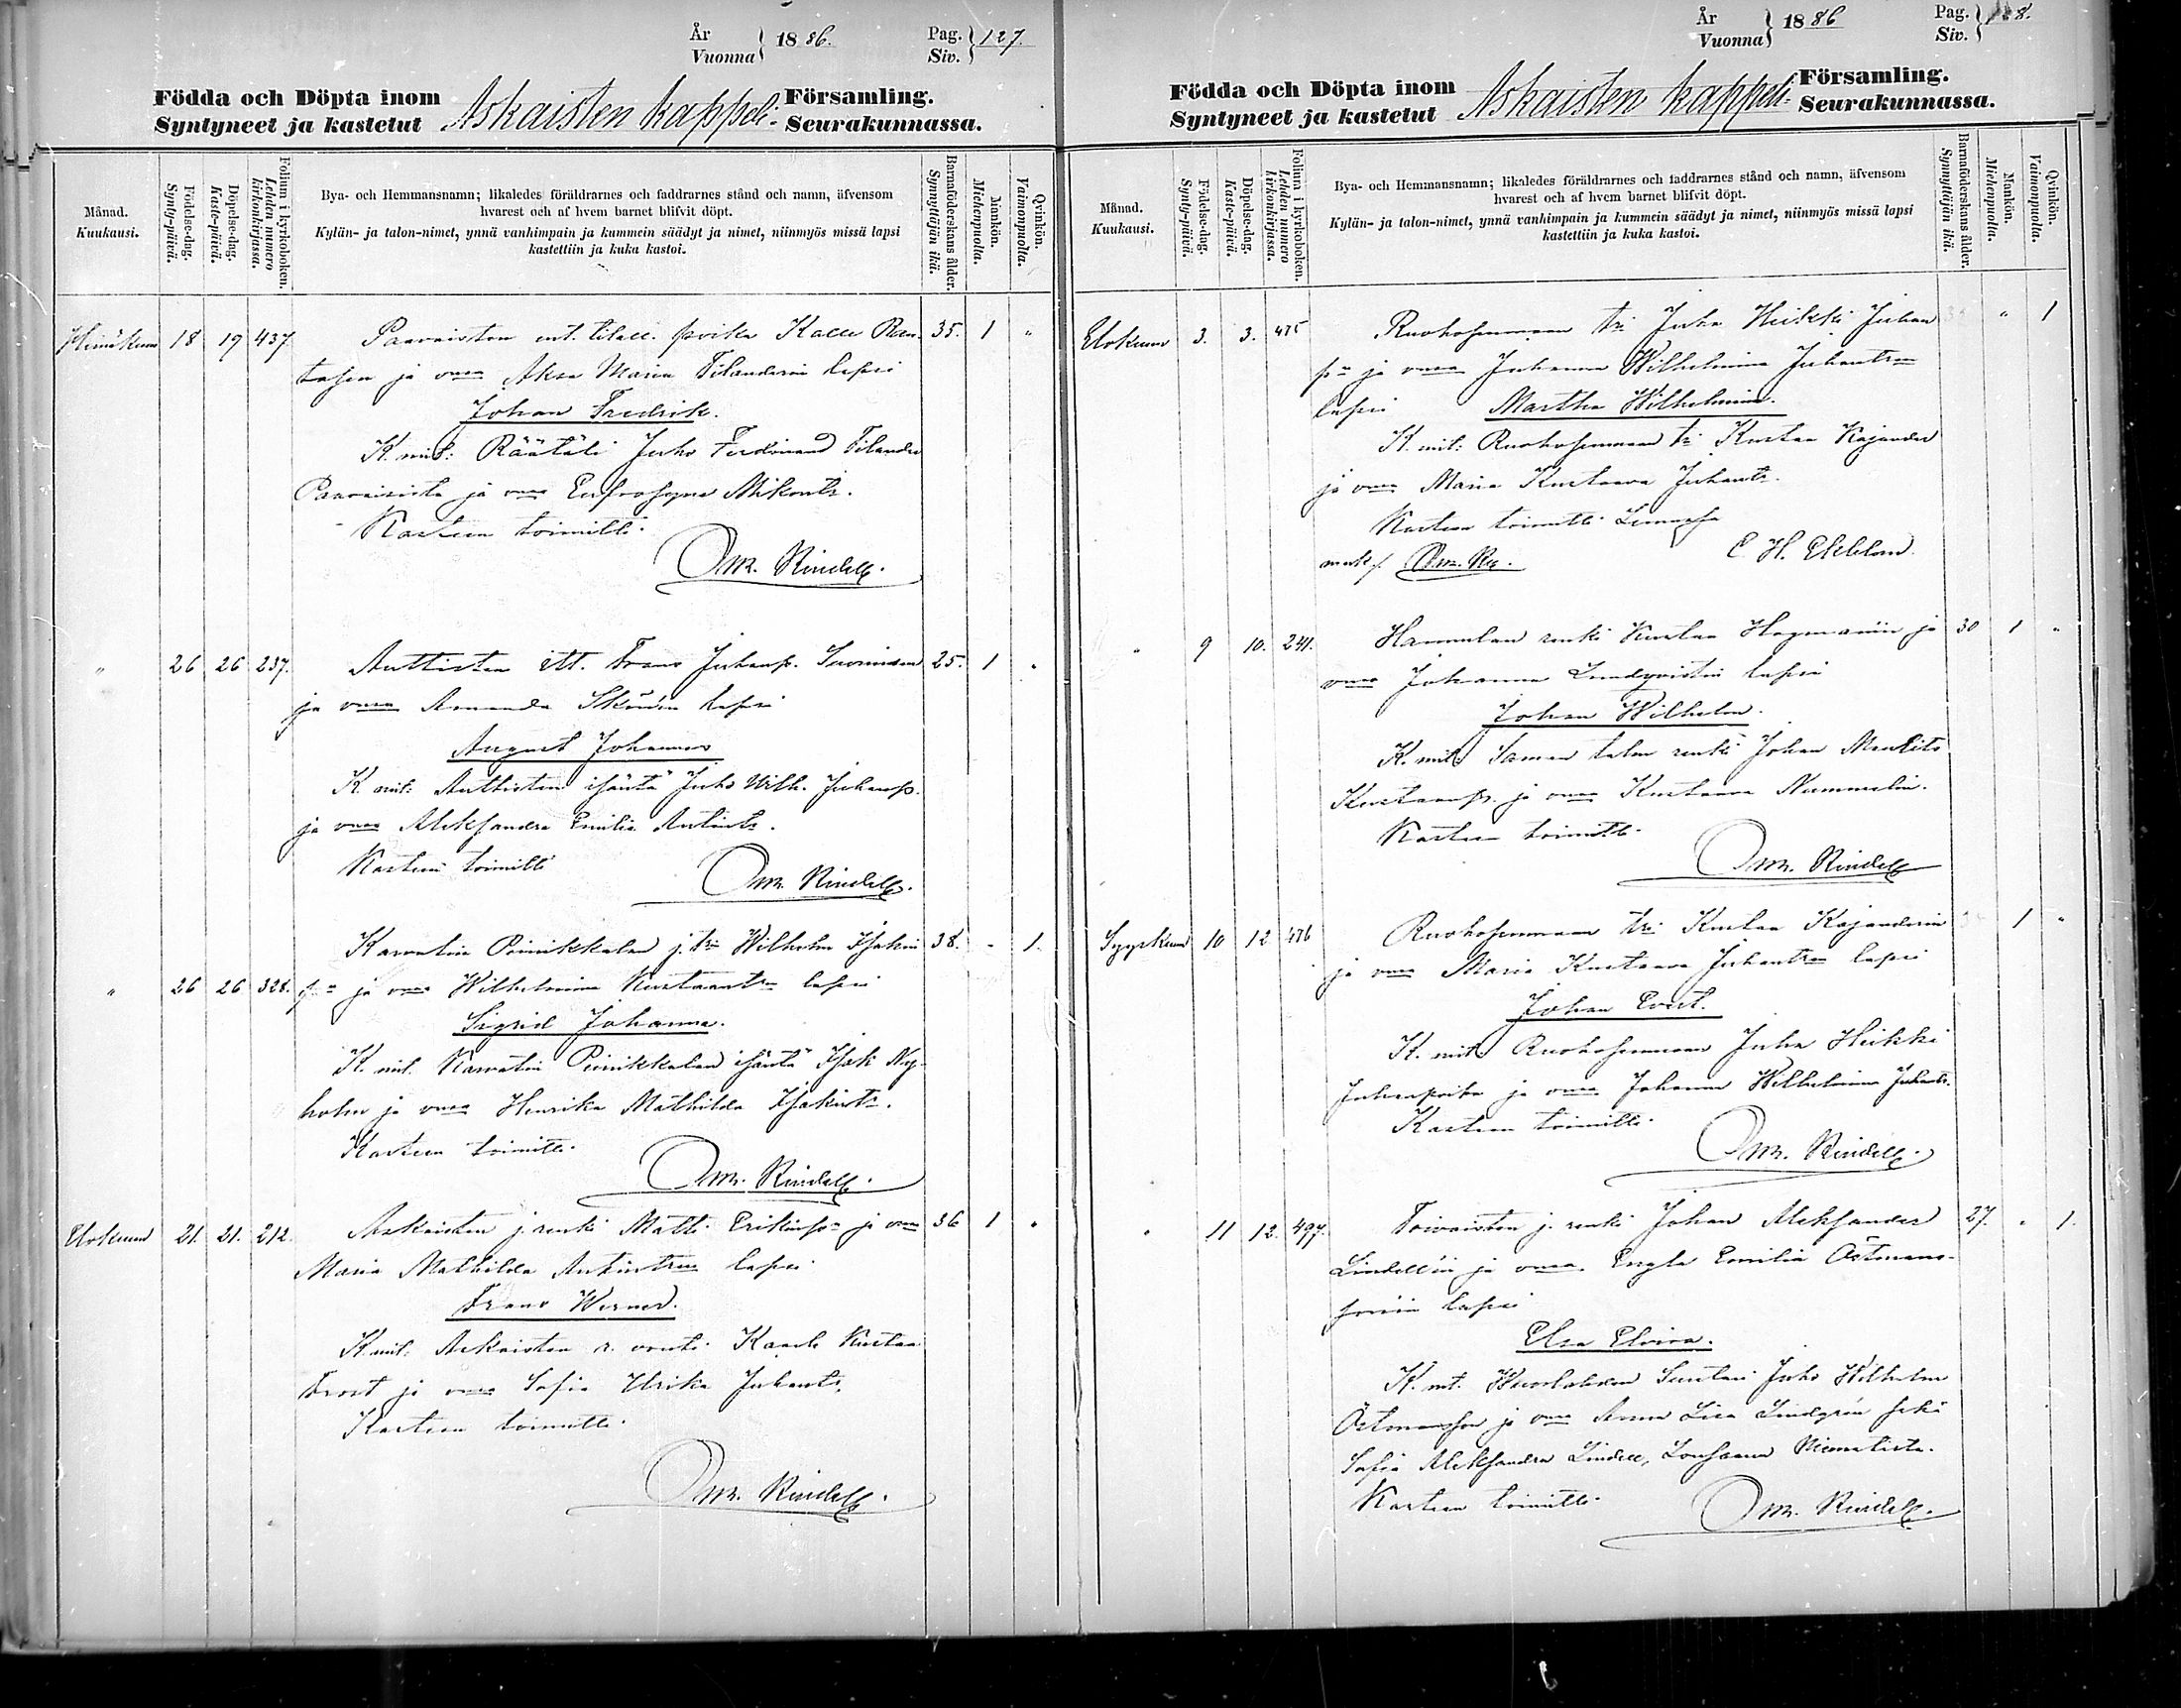 År
Vuonna } 1886.
Pag.
Siv. } 127.
Födda och Döpta inom
Syntyneet ja kastetut
Askaisten kappeli-
Församling.
Seurakunnassa.
Månad.
Kuukausi.
Födelse-dag.
Synty-päivä.
Döpelse-dag.
Kaste-päivä.
Folium i kyrkoboken.
Lehden numero kirkonkirjassa.
Bya- och Hemmansnamn; likaledes föräldrarnes och faddrarnes stånd och namn, äfvensom
hvarest och af hvem barnet blifvit döpt.
Kylän- ja talon-nimet, ynnä vanhimpain ja kummein säädyt ja nimet, niinmyös missä lapsi
kastettiin ja kuka kastoi.
Barnaföderskans ålder.
Synnyttäjän ikä.
Mankön.
Miehenpuolia.
Qvinkön.
Vaimonpuolia.
Heinäkuu 18 19 437 Paavaisten ent. tilall. poika Kalle Ran- 35. 1 "
tasen ja vmon Aksa Maria Filanderin lapsi
Johan Fredrik.
K. mit: Räätäli Juho Ferdinand Filander
Paavaisista ja vmo Eufrosyne Mikonts.
Kasteen toimitti
Osm. Rindell.
" 26 26 237. Auttisten itt. Frans Juhanp. Suominen 25. 1 "
ja vmon Amanda lapsi
August Johannes
K. mit: Auttisten isäntä Juho Wilh. Juhanp.
ja vmo Aleksandra Emilia Antints.
Kasteen toimitti
Osm. Rindell.
Karvatin Piinikkalan j. tri Wilhelm Isakin 38. - 1.
" 26 26 328. pn ja vmo Wilhelmina Kustaantrn lapsi
Sigrid Johanna.
K. mit. Karvatin Piinikkalan isäntä Isak Ny-
holm ja vmo Henrika Mathilda Isakints.
Kasteen toimitti
Osm. Rindell.
Elokuu 21. 21. 212. Askaisten j. renki Matti Erikinpn ja vmon 36 1 "
Maria Mathilda Antintrn lapsi
Frans Werner.
K. mit: Askaisten r. vouti Kaarle Kustaa
Frost ja vmo Sofia Ulrika Juhants.
Kasteen toimitti
Osm. Rindell.
År
Vuonna } 1886
Pag.
Siv. } 128.
Födda och Döpta inom
Syntyneet ja kastetut
Askaisten kappeli-
Församling.
Seurakunnassa.
Månad.
Kuukausi.
Födelse-dag.
Synty-päivä.
Döpelse-dag.
Kaste-päivä.
Folium i kyrkoboken.
Lehden numero kirkonkirjassa.
Bya- och Hemmansnamn; likaledes föräldrarnes och faddrarnes stånd och namn, äfvensom
hvarest och af hvem barnet blifvit döpt.
Kylän- ja talon-nimet, ynnä vanhimpain ja kummein säädyt ja nimet, niinmyös missä lapsi
kastettiin ja kuka kastoi.
Barnaföderskans ålder.
Synnyttäjän ikä.
Mankön.
Miehenpuolia.
Qvinkön.
Vaimonpuolia.
Elokuu 3. 3. 475 Ruohosenmaan tri Juha Heikki Juhan " 1
pn ja vmon Johanna Wilhelmina Juhantrn
lapsi Martha Wilhelmina.
K. mit: Ruohosenmaan tri Kustaa Kajander
ja vmo Maria Kustaava Juhants.
Kasteen toimitti Lemussa
C H. Ekblom
" 9 10. 241. Hannulan renki Kustaa Hagmanin ja 30 1 "
vmon Johanna Lundqvistin lapsi
Johan Wilhelm.
K. mit. Saman talon renki Johan Maulits
Kustaanp. ja vmo Kustaava Nummelin.
Kasteen toimitti
Osm. Rindell
Syyskuu 10 12 476 Ruohosenmaan tri Kustaa Kajanderin 1 "
ja vmo Maria Kustaava Juhantrn lapsi
Johan Evert.
K. mit. Ruohosenmaan Juha Heikki
Juhanpoika ja vmo Johanna Wilhelmina Juhants.
Kasteen toimitti
Osm. Rindell.
" 11 12. 497. Toivaisten j. renki Johan Aleksander 27. " 1.
Lindellin ja vmon Engla Emilia Östmans-
sonin lapsi
Elsa Elvira.
K. mt. Suutari Juho Wilhelm
Östmansson ja vmo Anna Lisa Lindgrén sekä
Sofia Aleksandra Lindell, Niemalista.
Kasteen toimitti
Osm. Rindell.